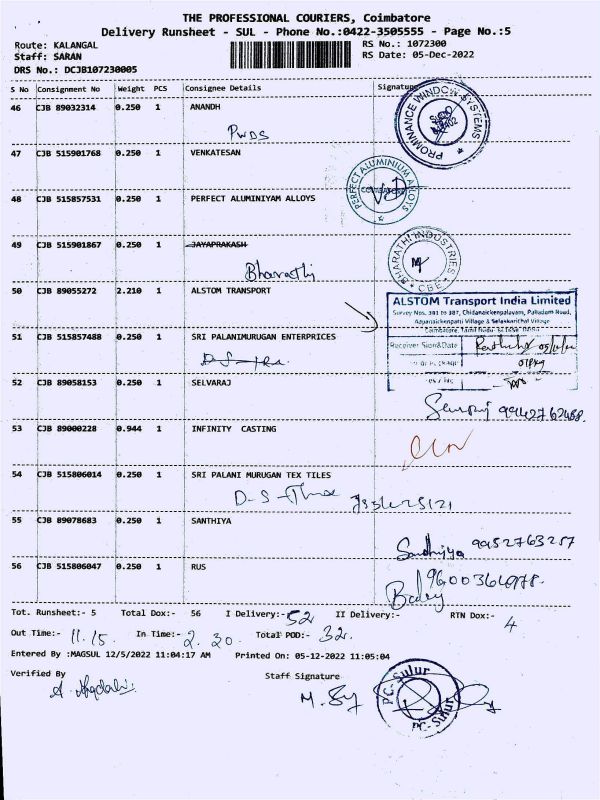 THE PROFESSIONAL COURIERS, Coimbatore
Delivery Runsheet - SUL - Phone No.:0422-3505555 - Page No.:5
Route: KALANGAL RS No.: 1072300
Staff: SARAN RS Date: 05-Dec-2022
DRS No.: DCJB107230005
S No Consignment No Weight PCS Consignee Details Signature
46 CJB 89032314 0.250 1 ANANDH
PWDS
PROMINANCE WINDOW SYSTEMS
47 CJB 515901768 0.250 1 VENKATESAN
PERFECT ALUMINIUM ALLOYS
48 CJB 515857531 0.250 1 PERFECT ALUMINIYAM ALLOYS
49 CJB 515901867 0.250 1 JAYAPRAKASH
Bharathi
BHARATHI INDUSTRIES
CBE
50 CJB 89055272 2.210 1 ALSTOM TRANSPORT
ALSTOM Transport India Limited
Survey Nos. 381 to 387, Chidanaickenpalayam, Palladam Road,
Receiver Sign&Date
51 CJB 515857488 0.250 1 SRI PALANIMURUGAN ENTERPRICES
52 CJB 89058153 0.250 1 SELVARAJ
53 CJB 89000228 0.944 1 INFINITY CASTING
54 CJB 515806014 0.250 1 SRI PALANI MURUGAN TEX TILES
55 CJB 89078683 0.250 1 SANTHIYA
Sandhiya
56 CJB 515806047 0.250 1 RUS
Tot. Runsheet:- 5 Total Dox:- 56 I Delivery:- 52 II Delivery:- RTN Dox:- 4
Out Time:- 11.15. In Time:- 2.30. Total POD:- 32.
Entered By :MAGSUL 12/5/2022 11:04:17 AM Printed On: 05-12-2022 11:05:04
Verified By Staff Signature
PC-Sulur
PC-Sulur